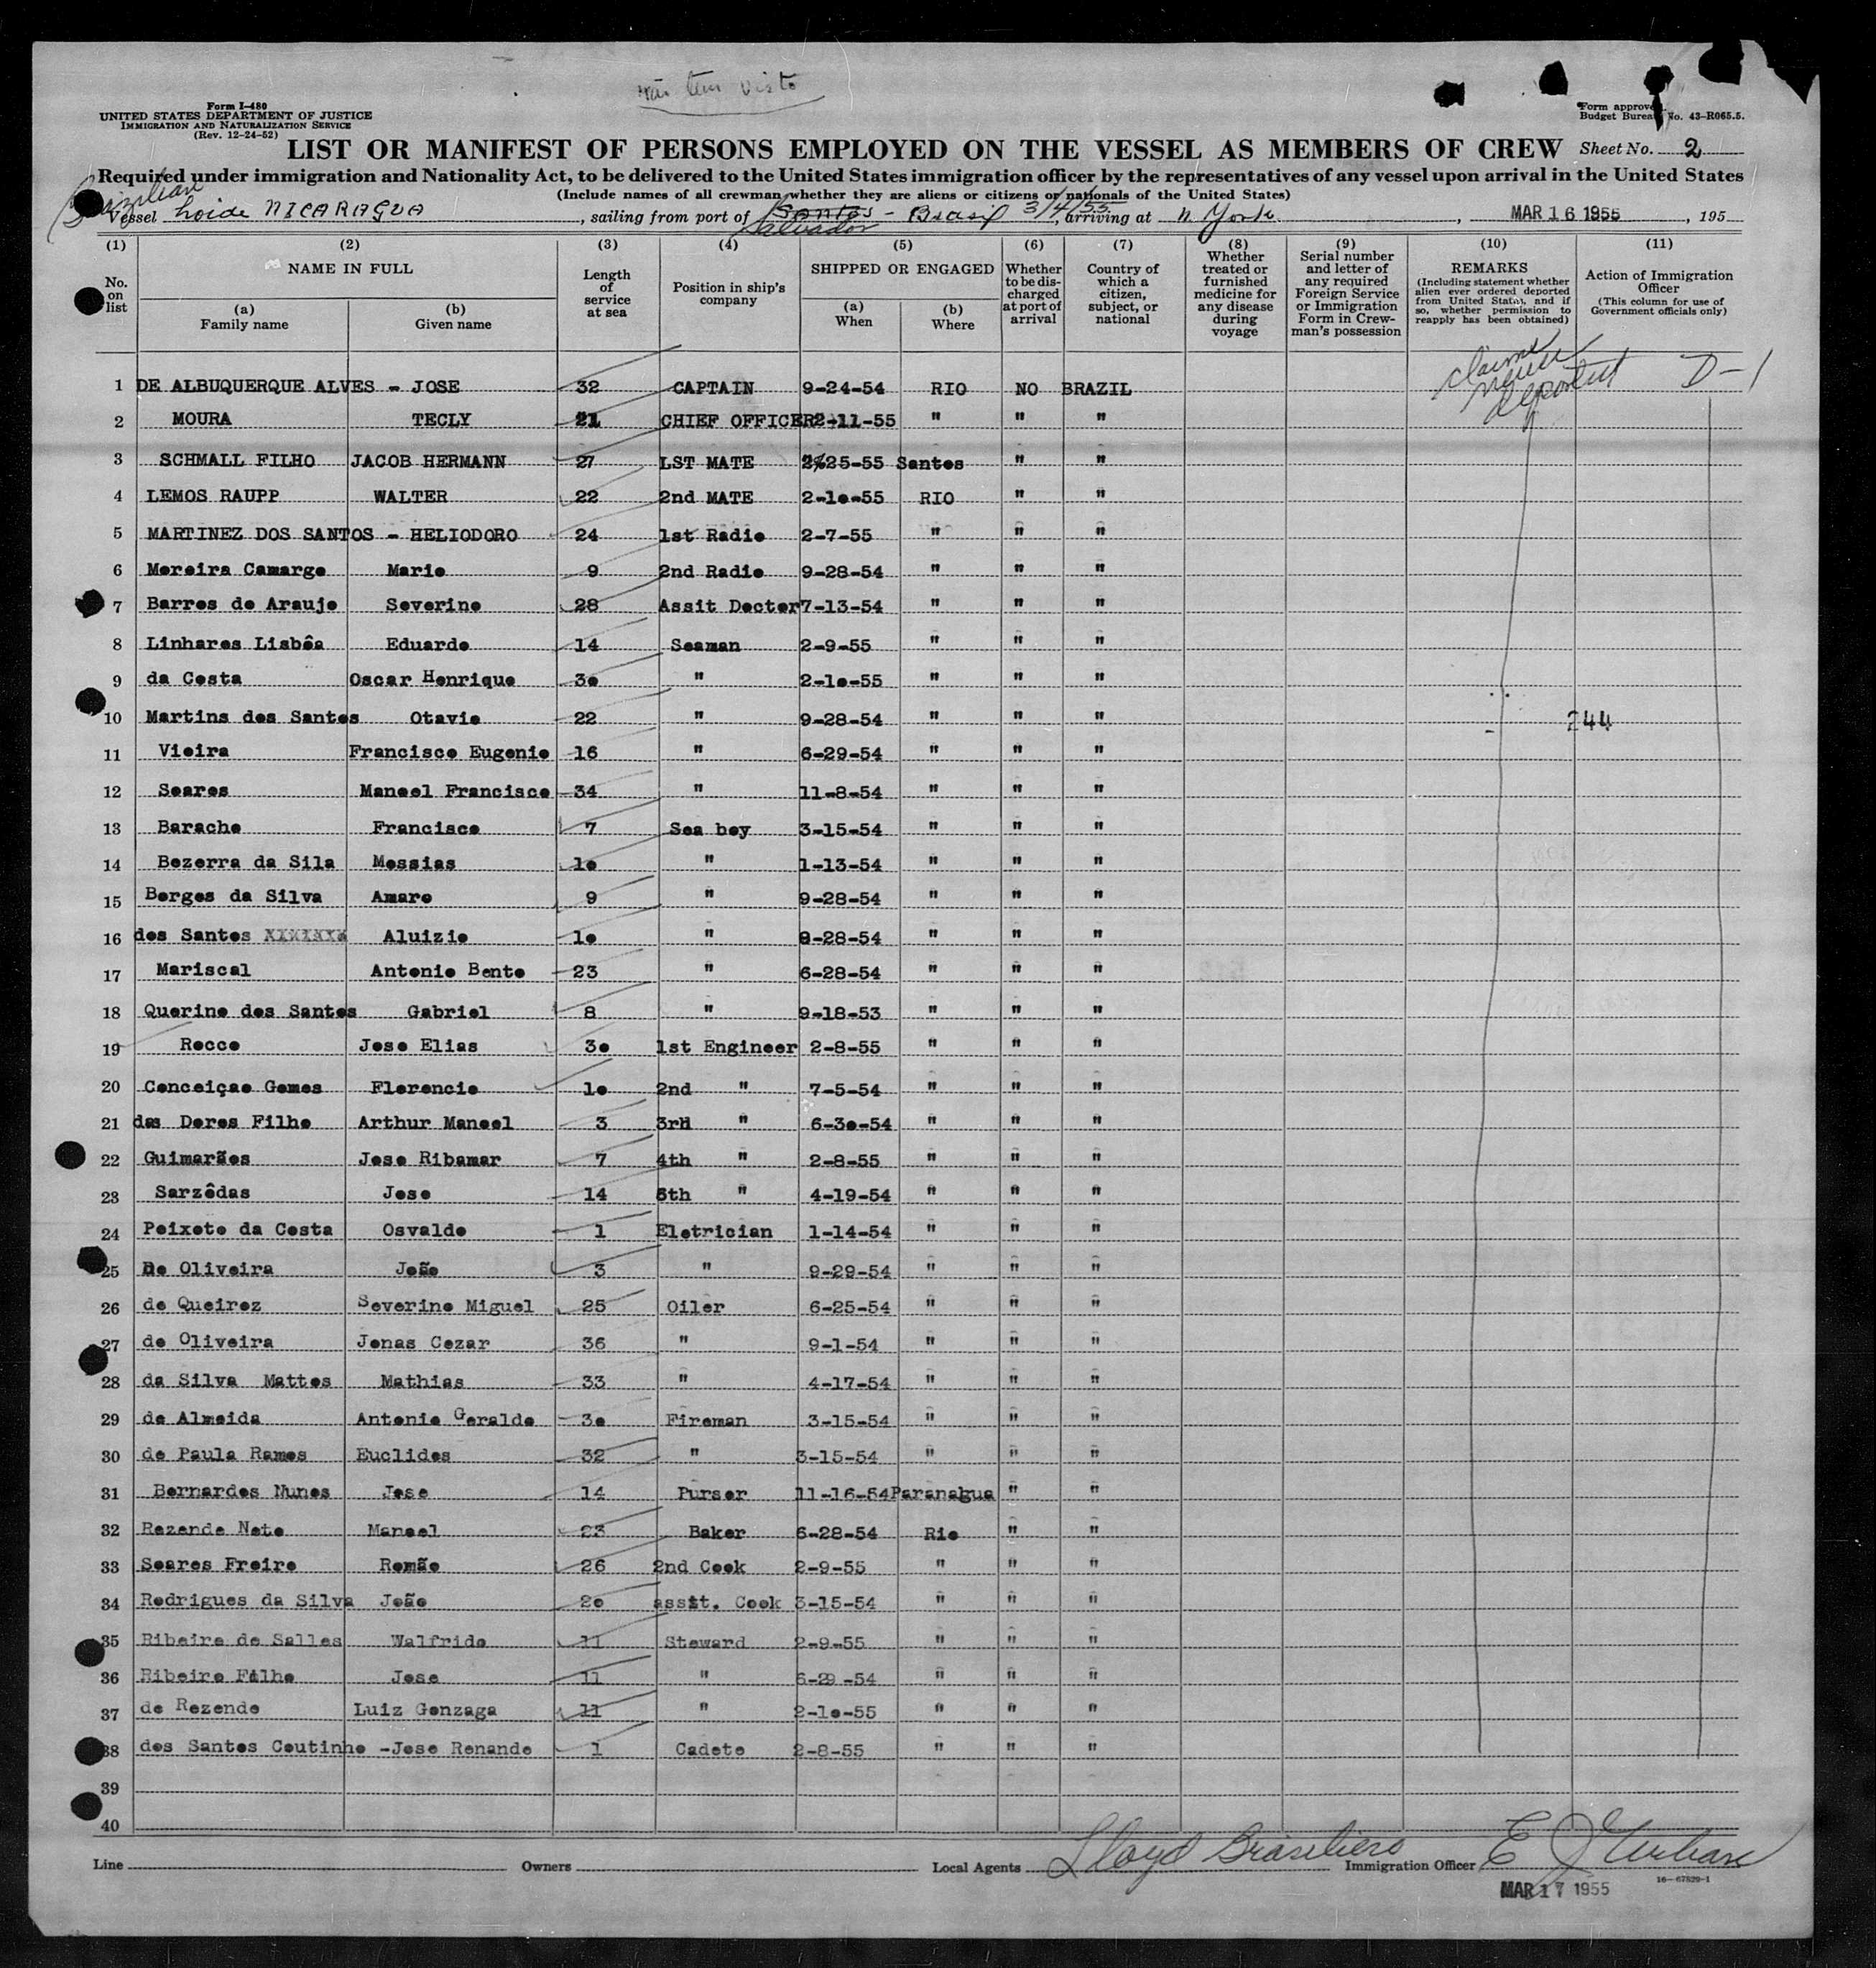 Não tem visto
Form I-480
UNITED STATES DEPARTMENT OF JUSTICE
IMMIGRATION AND NATURALIZATION SERVICE
(Rev. 12-24-52)
Form approved.
Budget Bureau No. 43-R065.5.
LIST OR MANIFEST OF PERSONS EMPLOYED ON THE VESSEL AS MEMBERS OF CREW Sheet No. 2
Required under immigration and Nationality Act, to be delivered to the United States immigration officer by the representatives of any vessel upon arrival in the United States
(Include names of all crewman whether they are aliens or citizens or nationals of the United States)
Brazilian
Vessel Loide NICARAGUA, sailing from port of Santos - Brasil 3/4/55, arriving at N. York, MAR 16 1955, 195
Salvador
(1) (2) (3) (4) (5) (6) (7) (8) (9) (10) (11)
No. on list
NAME IN FULL
(a) Family name
(b) Given name
Length of service at sea
Position in ship's company
SHIPPED OR ENGAGED
(a) When
(b) Where
Whether to be discharged at port of arrival
Country of which a citizen, subject, or national
Whether treated or furnished medicine for any disease during voyage
Serial number and letter of any required Foreign Service or Immigration Form in Crewman's possession
REMARKS
(Including statement whether alien ever ordered deported from United States, and if so, whether permission to reapply has been obtained)
Action of Immigration Officer
(This column for use of Government officials only)
1 DE ALBUQUERQUE ALVES - JOSE 32 CAPTAIN 9-24-54 RIO NO BRAZIL claims never deported D-1
2 MOURA TECLY 21 CHIEF OFFICER 2-11-55 " " "
3 SCHMALL FILHO JACOB HERMANN 27 LST MATE 2-25-55 Santos " "
4 LEMOS RAUPP WALTER 22 2nd MATE 2-1o-55 RIO " "
5 MARTINEZ DOS SANTOS - HELIODORO 24 1st Radio 2-7-55 " " "
6 Moreira Camargo Mario 9 2nd Radio 9-28-54 " " "
7 Barros de Araujo Severino 28 Assit Doctor 7-13-54 " " "
8 Linhares Lisbôa Eduardo 14 Seaman 2-9-55 " " "
9 da Costa Oscar Henrique 3o " 2-1o-55 " " "
10 Martins dos Santos Otavio 22 " 9-28-54 " " " 244
11 Vieira Francisco Eugenio 16 " 6-29-54 " " "
12 Soares Manoel Francisco 34 " 11-8-54 " " "
13 Baracho Francisco 7 Sea boy 3-15-54 " " "
14 Bezerra da Sila Messias 1o " 1-13-54 " " "
15 Borges da Silva Amaro 9 " 9-28-54 " " "
16 dos Santos XXXXXXX Aluizio 1o " 9-28-54 " " "
17 Mariscal Antonio Bento 23 " 6-28-54 " " "
18 Querino dos Santos Gabriel 8 " 9-18-53 " " "
19 Rocco Jose Elias 3o 1st Engineer 2-8-55 " " "
20 Conceiçao Gomes Florencio 1o 2nd " 7-5-54 " " "
21 das Dores Filho Arthur Manoel 3 3rd " 6-3o-54 " " "
22 Guimarães Jose Ribamar 7 4th " 2-8-55 " " "
23 Sarzêdas Jose 14 5th " 4-19-54 " " "
24 Peixoto da Costa Osvaldo 1 Eletrician 1-14-54 " " "
25 De Oliveira João 3 " 9-29-54 " " "
26 de Queiroz Severino Miguel 25 Oiler 6-25-54 " " "
27 de Oliveira Jonas Cezar 36 " 9-1-54 " " "
28 da Silva Mattos Mathias 33 " 4-17-54 " " "
29 de Almeida Antonio Geraldo 3o Fireman 3-15-54 " " "
30 de Paula Ramos Euclides 32 " 3-15-54 " " "
31 Bernardes Nunes Jose 14 Purser 11-16-54 Paranagua " "
32 Rezende Neto Manoel 23 Baker 6-28-54 Rio " "
33 Soares Freire Romão 26 2nd Cook 2-9-55 " " "
34 Rodrigues da Silva João 2o assit. Cook 3-15-54 " " "
35 Ribeiro de Salles Walfrido 11 Steward 2-9-55 " " "
36 Ribeiro Filho Jose 11 " 6-29-54 " " "
37 de Rezende Luiz Gonzaga 11 " 2-1o-55 " " "
38 dos Santos Coutinho -Jose Renando 1 Cadete 2-8-55 " " "
39
40
Line Owners Local Agents Lloyd Brasileiro Immigration Officer E J Urban
MAR 17 1955
16-67829-1